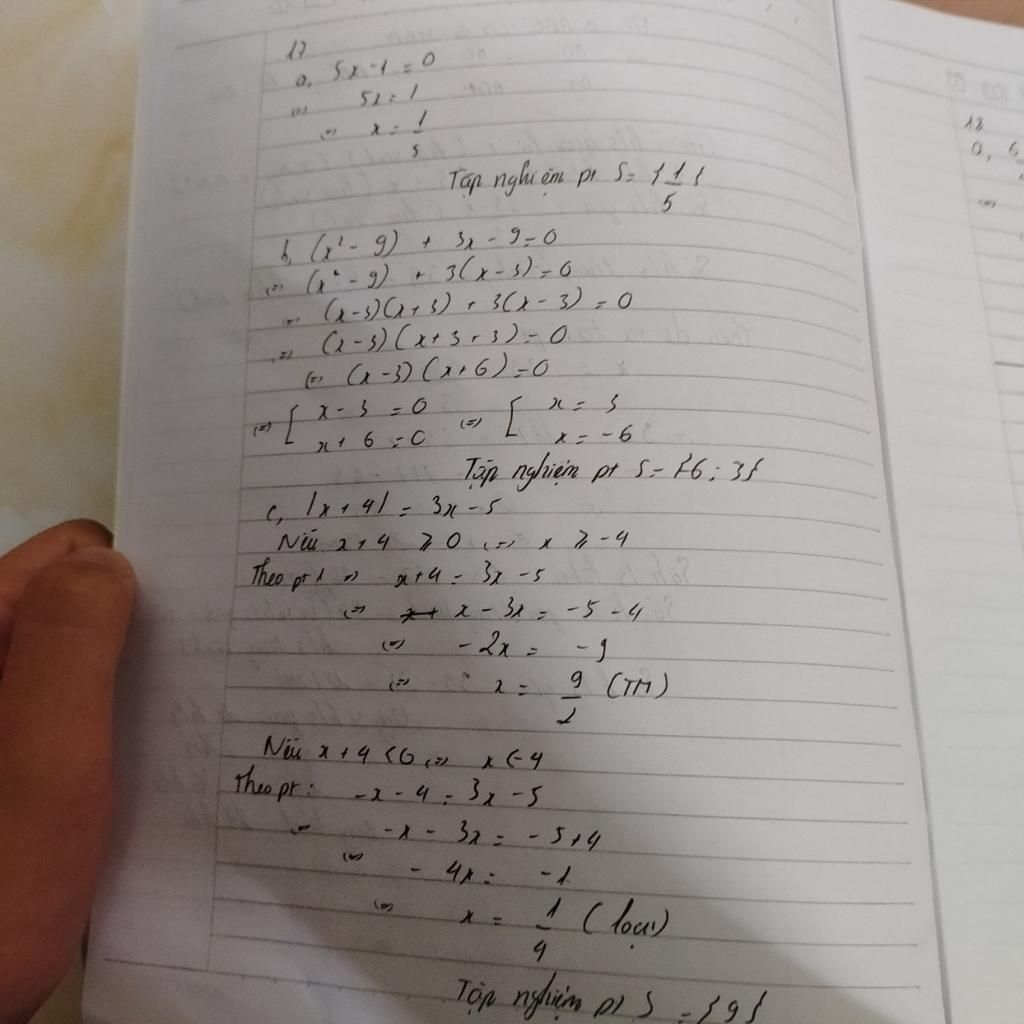 17
a, 5x-1=0
(=) 5x=1
(=) x = 1/5
Tập nghiệm pt S = {1/5}
b, (x² - 9) + 3x - 9 = 0
(=) (x² - 9) + 3(x - 3) = 0
(=) (x-3)(x+3) + 3(x-3) = 0
(=) (x-3)(x+3+3) = 0
(=) (x-3)(x+6) = 0
(=) [ x - 3 = 0 (=) [ x = 3
x + 6 = 0 x = -6
Tập nghiệm pt S = {-6; 3}
c, |x+4| = 3x - 5
Nếu x+4 ⩾ 0 (=) x ⩾ -4
Theo pt (=) x+4 = 3x - 5
(=) x - 3x = -5 - 4
(=) -2x = -9
(=) x = 9/2 (TM)
Nếu x+4 < 0 (=) x < -4
Theo pt: -x - 4 = 3x - 5
(=) -x - 3x = -5+4
(=) -4x = -1
(=) x = 1/4 (loại)
Tập nghiệm pt S = {9}
18
a, 6
(=)